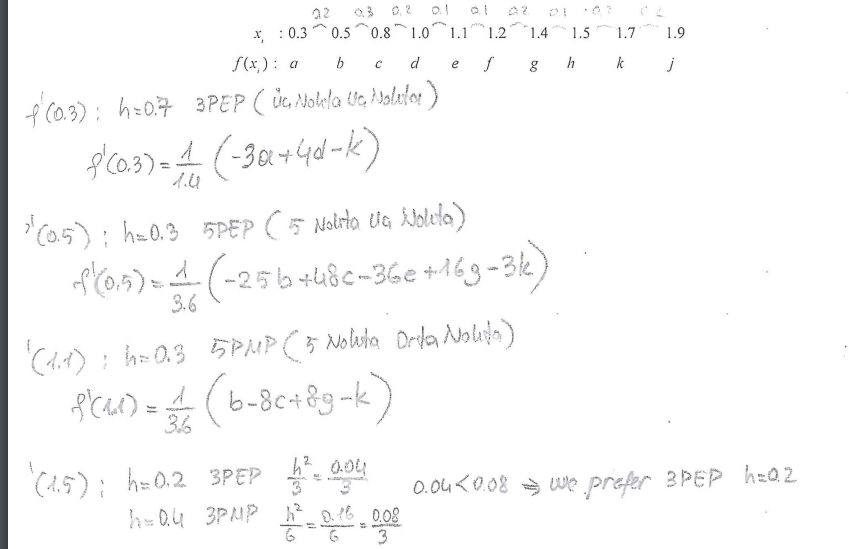 0.2 0.3 0.2 0.1 0.1 0.2 0.1 0.2 0.2
xᵢ : 0.3 0.5 0.8 1.0 1.1 1.2 1.4 1.5 1.7 1.9
f(xᵢ) : a b c d e f g h k j
f'(0.3) : h=0.7 3PEP (Üç Nokta Uç Noktası)
f'(0.3) = 1/1.4 (-3a+4d-k)
'(0.5) : h=0.3 5PEP (5 Nokta Uç Nokta)
f'(0.5) = 1/3.6 (-25b+48c-36e+16g-3k)
'(1.1) : h=0.3 5PMP (5 Nokta Orta Nokta)
f'(1.1) = 1/3.6 (b-8c+8g-k)
'(1.5) : h=0.2 3PEP h²/3 = 0.04/3 0.04<0.08 ⇒ we prefer 3PEP h=0.2
h=0.4 3PMP h²/6 = 0.16/6 = 0.08/3